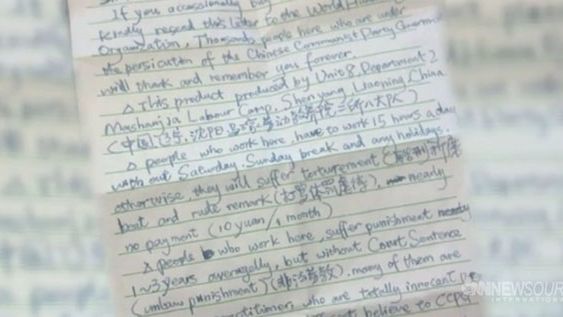 If you occasionally buy
Kindly resend this letter to the World Human
Organization. Thousands people here who are under
the persicution of the Chinese Communist Party Government
will thank and remember you forever.
△ This product produced by Unit 8, Department 2
Mashanjia Labour Camp, Shen yang, Liaoning, China
(中国, 辽宁, 沈阳, 马三家劳动教养院二所八大队)
△ people who work here, have to work 15 hours a day
with out Saturday, Sunday break and any holidays.
otherwise, they will suffer torturement
beat and rude remark (打骂体罚虐待), nearly
no payment (10 yuan/1 month)
△ people who work here, suffer punishment nearly
1~3 years averagelly, but without Court Sentence
(unlaw punishment) (非法劳教). many of them are
who are totally innocent
believe to CCPG
NNEWSOUR
INTERNATIONAL